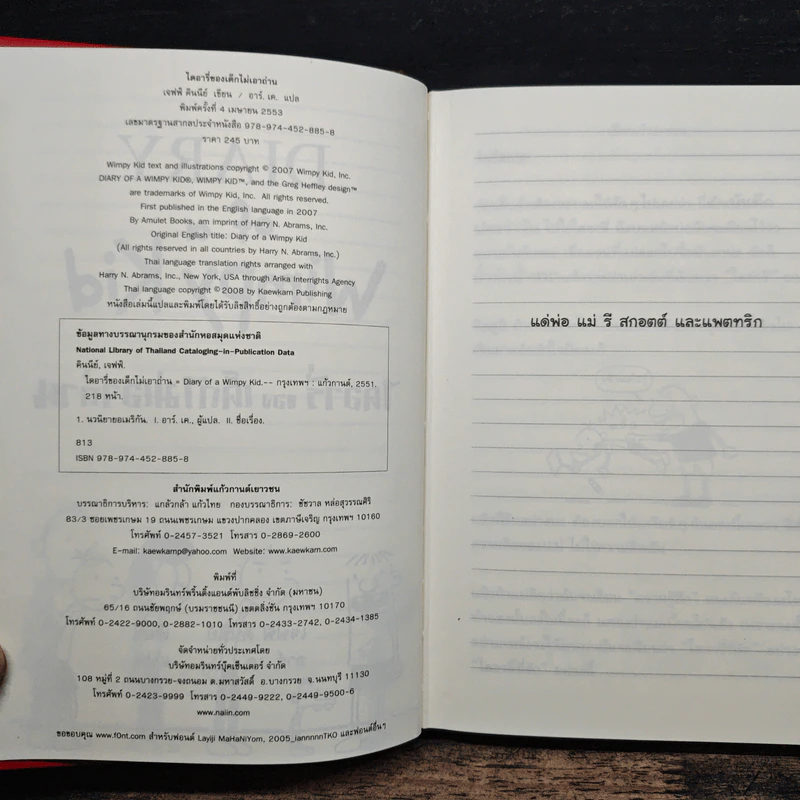 ไดอารี่ของเด็กไม่เอาถ่าน
เจฟฟ์ คินนีย์ เขียน / อาร์. เค. แปล
พิมพ์ครั้งที่ 4 เมษายน 2553
เลขมาตรฐานสากลประจำหนังสือ 978-974-452-885-8
ราคา 245 บาท
Wimpy Kid text and illustrations copyright © 2007 Wimpy Kid, Inc.
DIARY OF A WIMPY KID®, WIMPY KID™, and the Greg Heffley design™
are trademarks of Wimpy Kid, Inc. All rights reserved.
First published in the English language in 2007
By Amulet Books, am imprint of Harry N. Abrams, Inc.
Original English title: Diary of a Wimpy Kid
(All rights reserved in all countries by Harry N. Abrams, Inc.)
Thai language translation rights arranged with
Harry N. Abrams, Inc., New York, USA through Arika Interrights Agency
Thai language copyright ©2008 by Kaewkarn Publishing
หนังสือเล่มนี้แปลและพิมพ์โดยได้รับลิขสิทธิ์อย่างถูกต้องตามกฎหมาย
ข้อมูลทางบรรณานุกรมของสำนักหอสมุดแห่งชาติ
National Library of Thailand Cataloging-in-Publication Data
คินนีย์, เจฟฟ์.
ไดอารี่ของเด็กไม่เอาถ่าน = Diary of a Wimpy Kid.-- กรุงเทพฯ : แก้วกานต์, 2551.
218 หน้า.
1. นวนิยายอเมริกัน. I. อาร์. เค., ผู้แปล. II. ชื่อเรื่อง.
813
ISBN 978-974-452-885-8
สำนักพิมพ์แก้วกานต์เยาวชน
บรรณาธิการบริหาร: แกล้วกล้า แก้วไทย กองบรรณาธิการ: ชัชวาล หล่อสุวรรณศิริ
83/3 ซอยเพชรเกษม 19 ถนนเพชรเกษม แขวงปากคลอง เขตภาษีเจริญ กรุงเทพฯ 10160
โทรศัพท์ 0-2457-3521 โทรสาร 0-2869-2600
E-mail: kaewkarnp@yahoo.com Website: www.kaewkarn.com
พิมพ์ที่
บริษัทอมรินทร์พริ้นติ้งแอนด์พับลิชชิ่ง จำกัด (มหาชน)
65/16 ถนนชัยพฤกษ์ (บรมราชชนนี) เขตตลิ่งชัน กรุงเทพฯ 10170
โทรศัพท์ 0-2422-9000, 0-2882-1010 โทรสาร 0-2433-2742, 0-2434-1385
จัดจำหน่ายทั่วประเทศโดย
บริษัทอมรินทร์บุ๊คเซ็นเตอร์ จำกัด
108 หมู่ที่ 2 ถนนบางกรวย-จงถนอม ต.มหาสวัสดิ์ อ.บางกรวย จ.นนทบุรี 11130
โทรศัพท์ 0-2423-9999 โทรสาร 0-2449-9222, 0-2449-9500-6
www.naiin.com
ขอขอบคุณ www.f0nt.com สำหรับฟอนต์ Layiji MaHaNiYom, 2005_iannnnnTKO และฟอนต์อื่นๆ
แด่พ่อ แม่ รี สกอตต์ และแพตทริก